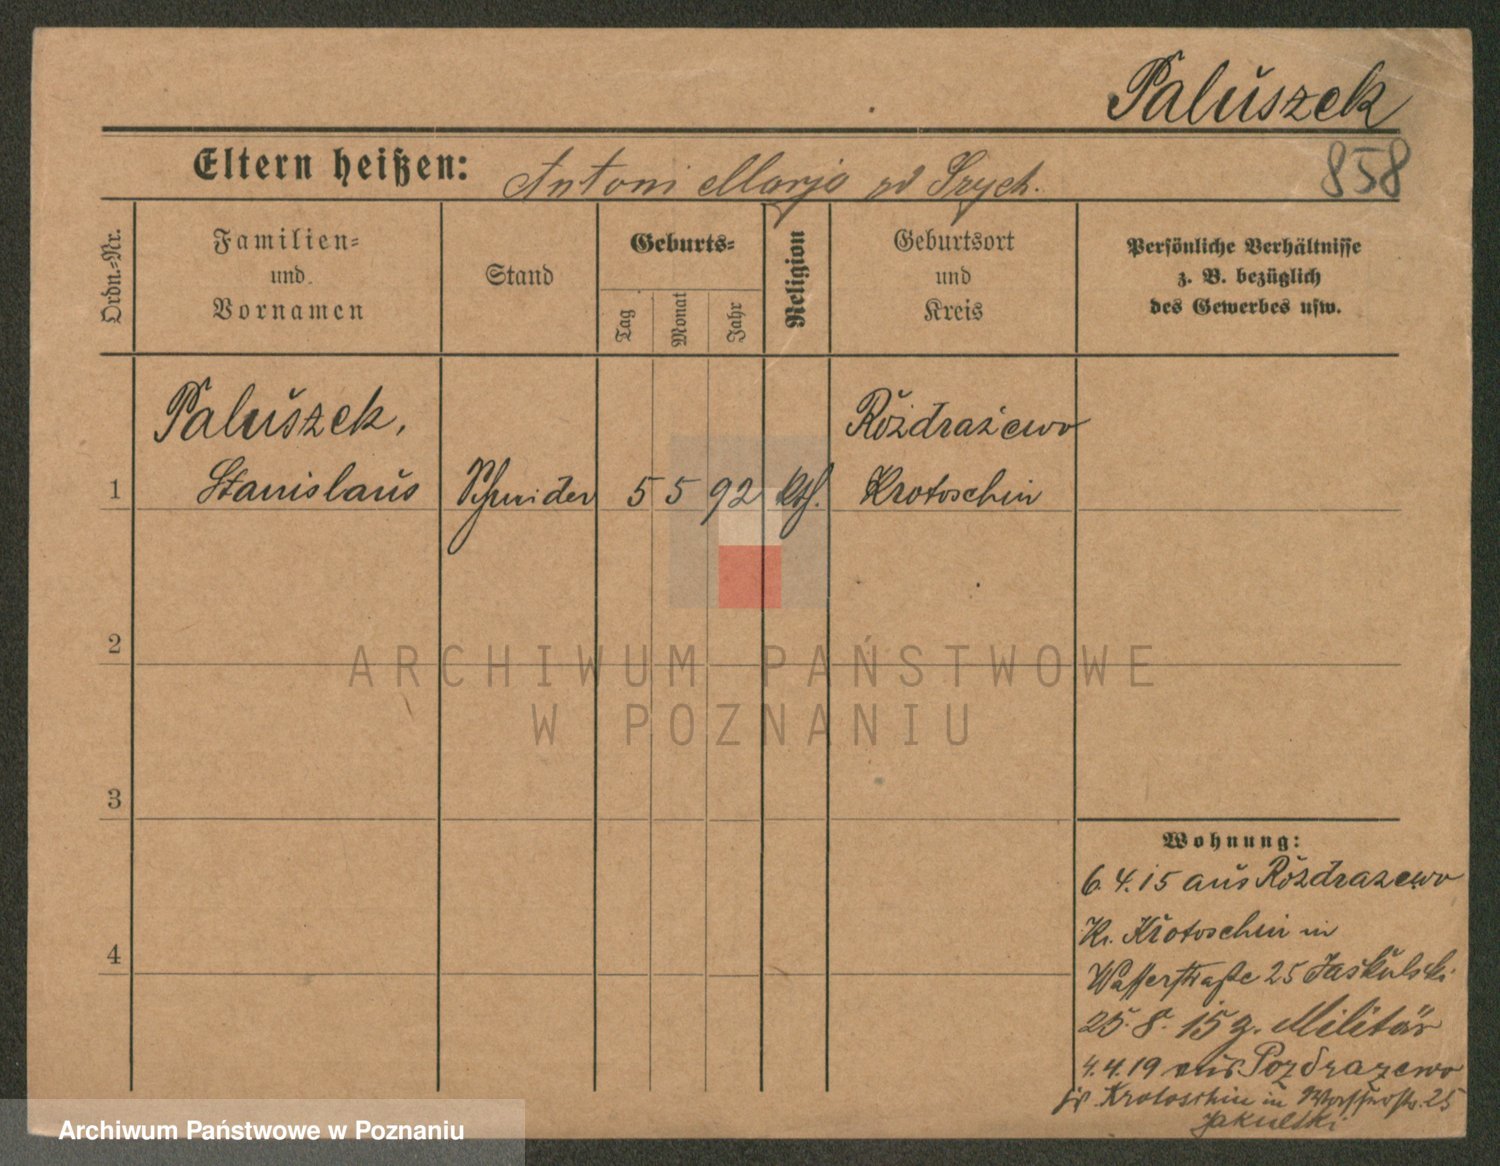 Paluszek
858
Eltern heißen: Antoni Marja zd Szych.
Ordn.-Nr.
Familien-
und
Vornamen
Stand
Geburts-
Tag
Monat
Jahr
Religion
Geburtsort
und
Kreis
Persönliche Verhältnisse
z. B. bezüglich
des Gewerbes usw.
Paluszek,
Rozdrażewo
1 Stanislaus Schneider 5 5 92 kth. Krotoschin
2
3
4
ARCHIWUM PAŃSTWOWE
W POZNANIU
Wohnung:
6.4.15 aus Rozdrazewo
Kr. Krotoschin in
Wasserstraße 25 Jaskulski
25.8.15 z. Militär
4.4.19 aus Rozdrazewo
Kr. Krotoschin in Wasserstr. 25
Jakulski
Archiwum Państwowe w Poznaniu